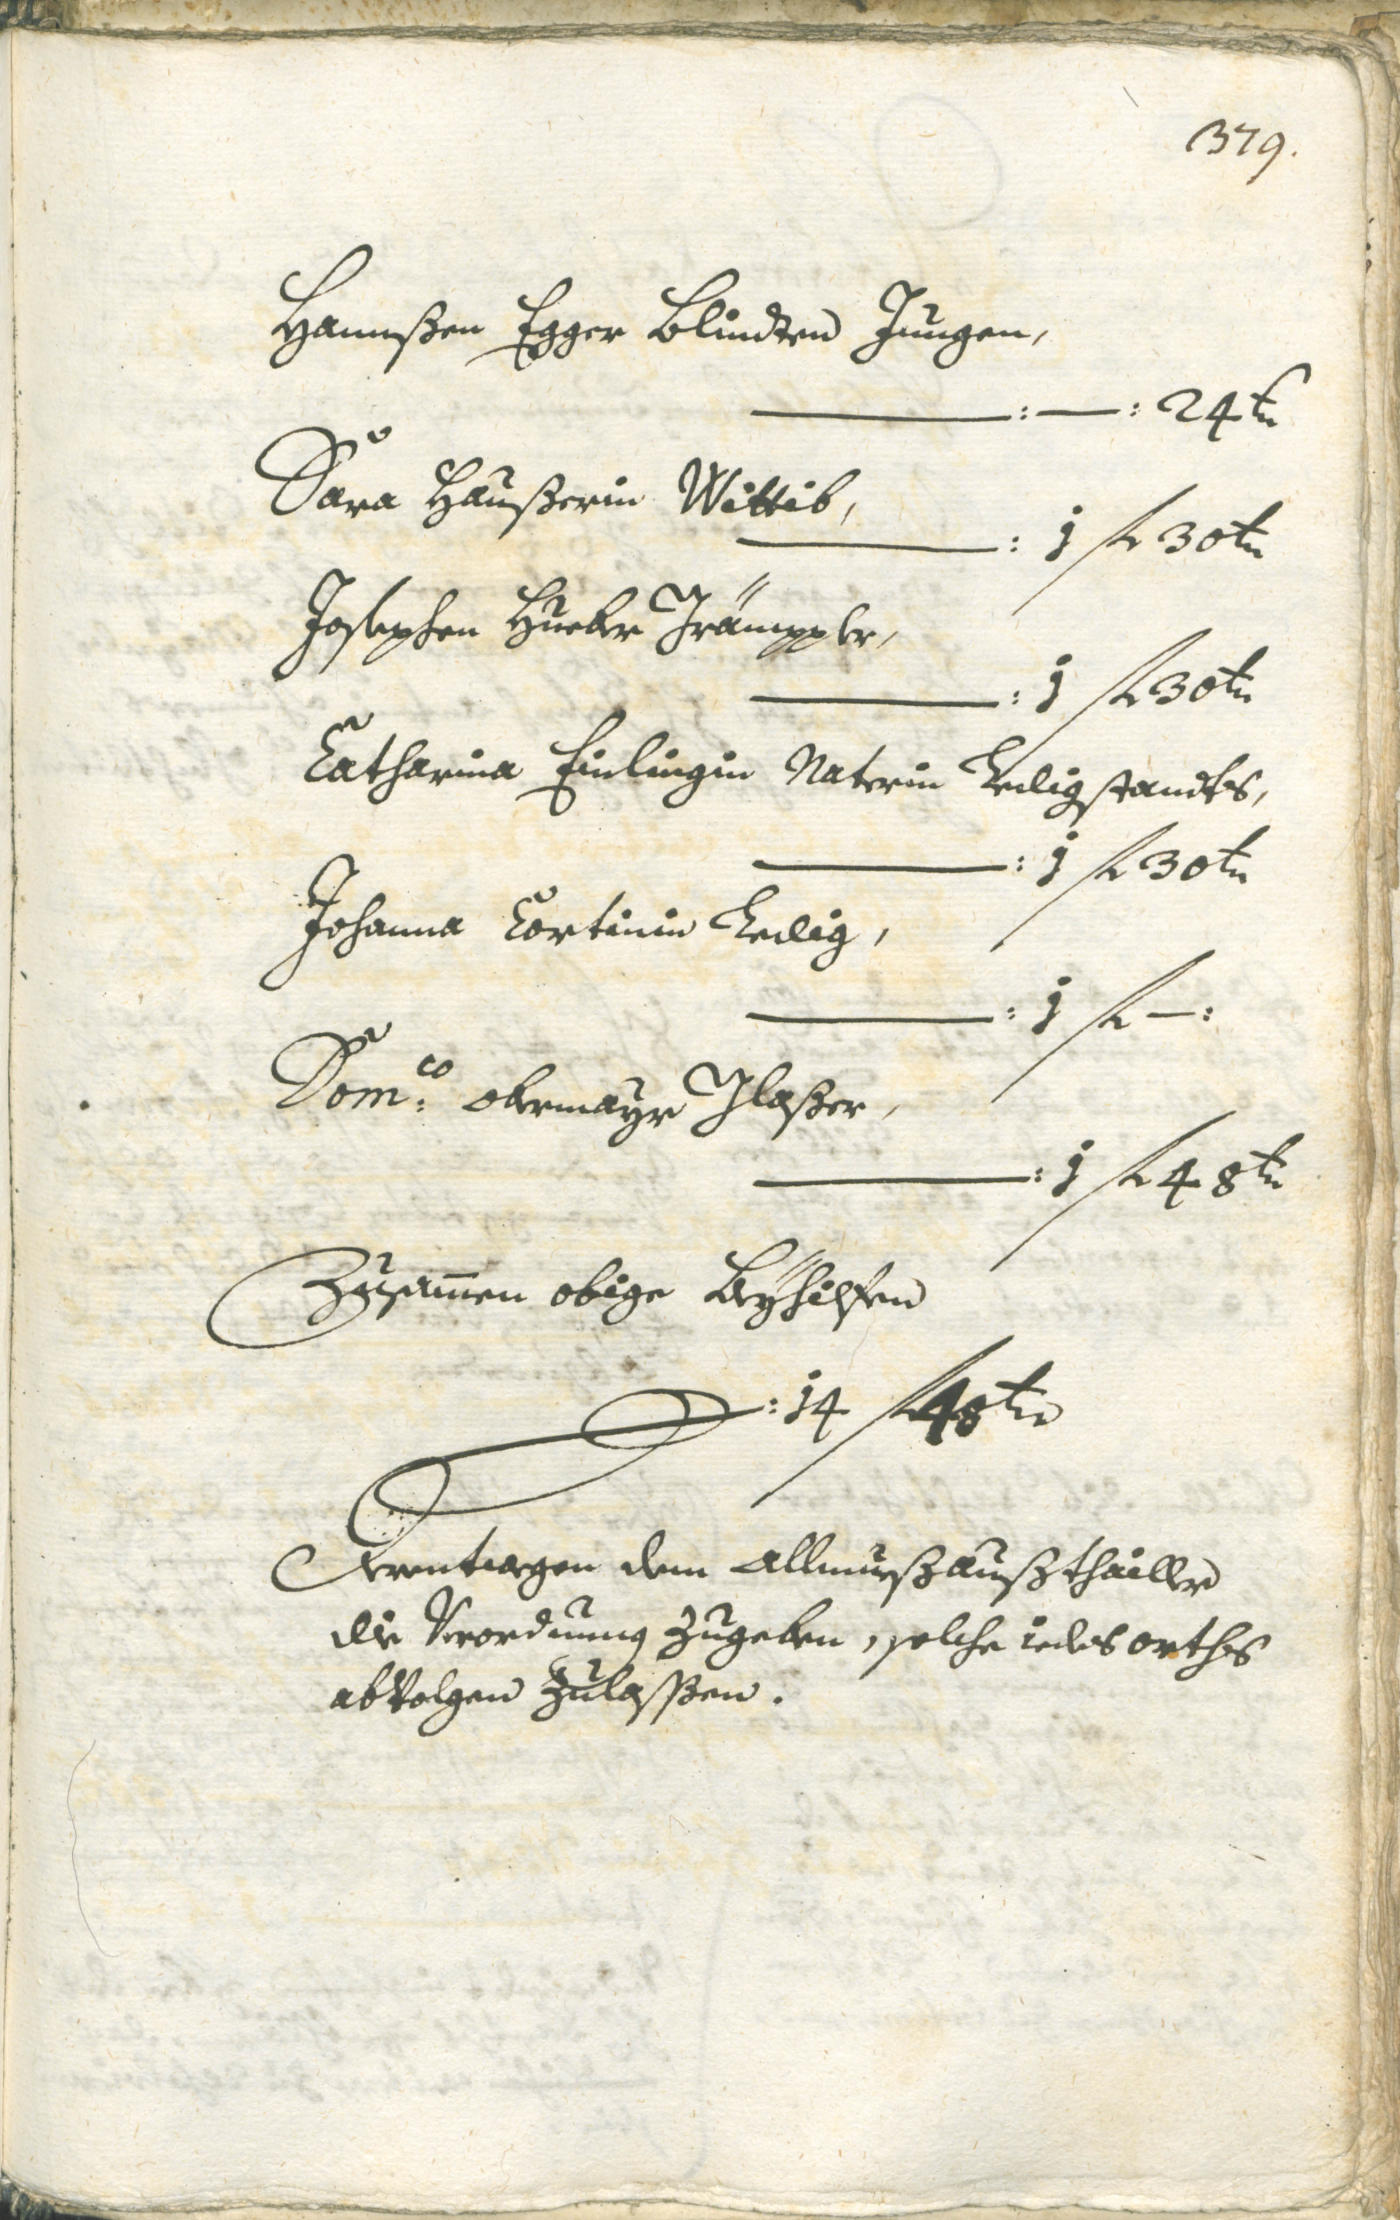 379.
Hannßen Egger Blindten Jungen,
———:—: 24 kr
Sara Haußerin Wittib,
———: 1 fl 30 kr
Josephen Hueber Trämppler,
———: 1 fl 30 kr
Catharina Einlingin Naterin Ledigstandts,
———: 1 fl 30 kr
Johanna Cortinin Ledig,
———: 1 fl —:
Dom:co obermayr Glaßer,
———: 1 fl 48 kr
Zusamen obige Beyhilfen
: 14 fl 48 kr
derentwegen dem Allmueßaußthailler
die Verordnung zugeben, solche iedes orths
abvolgen zulaßßen.